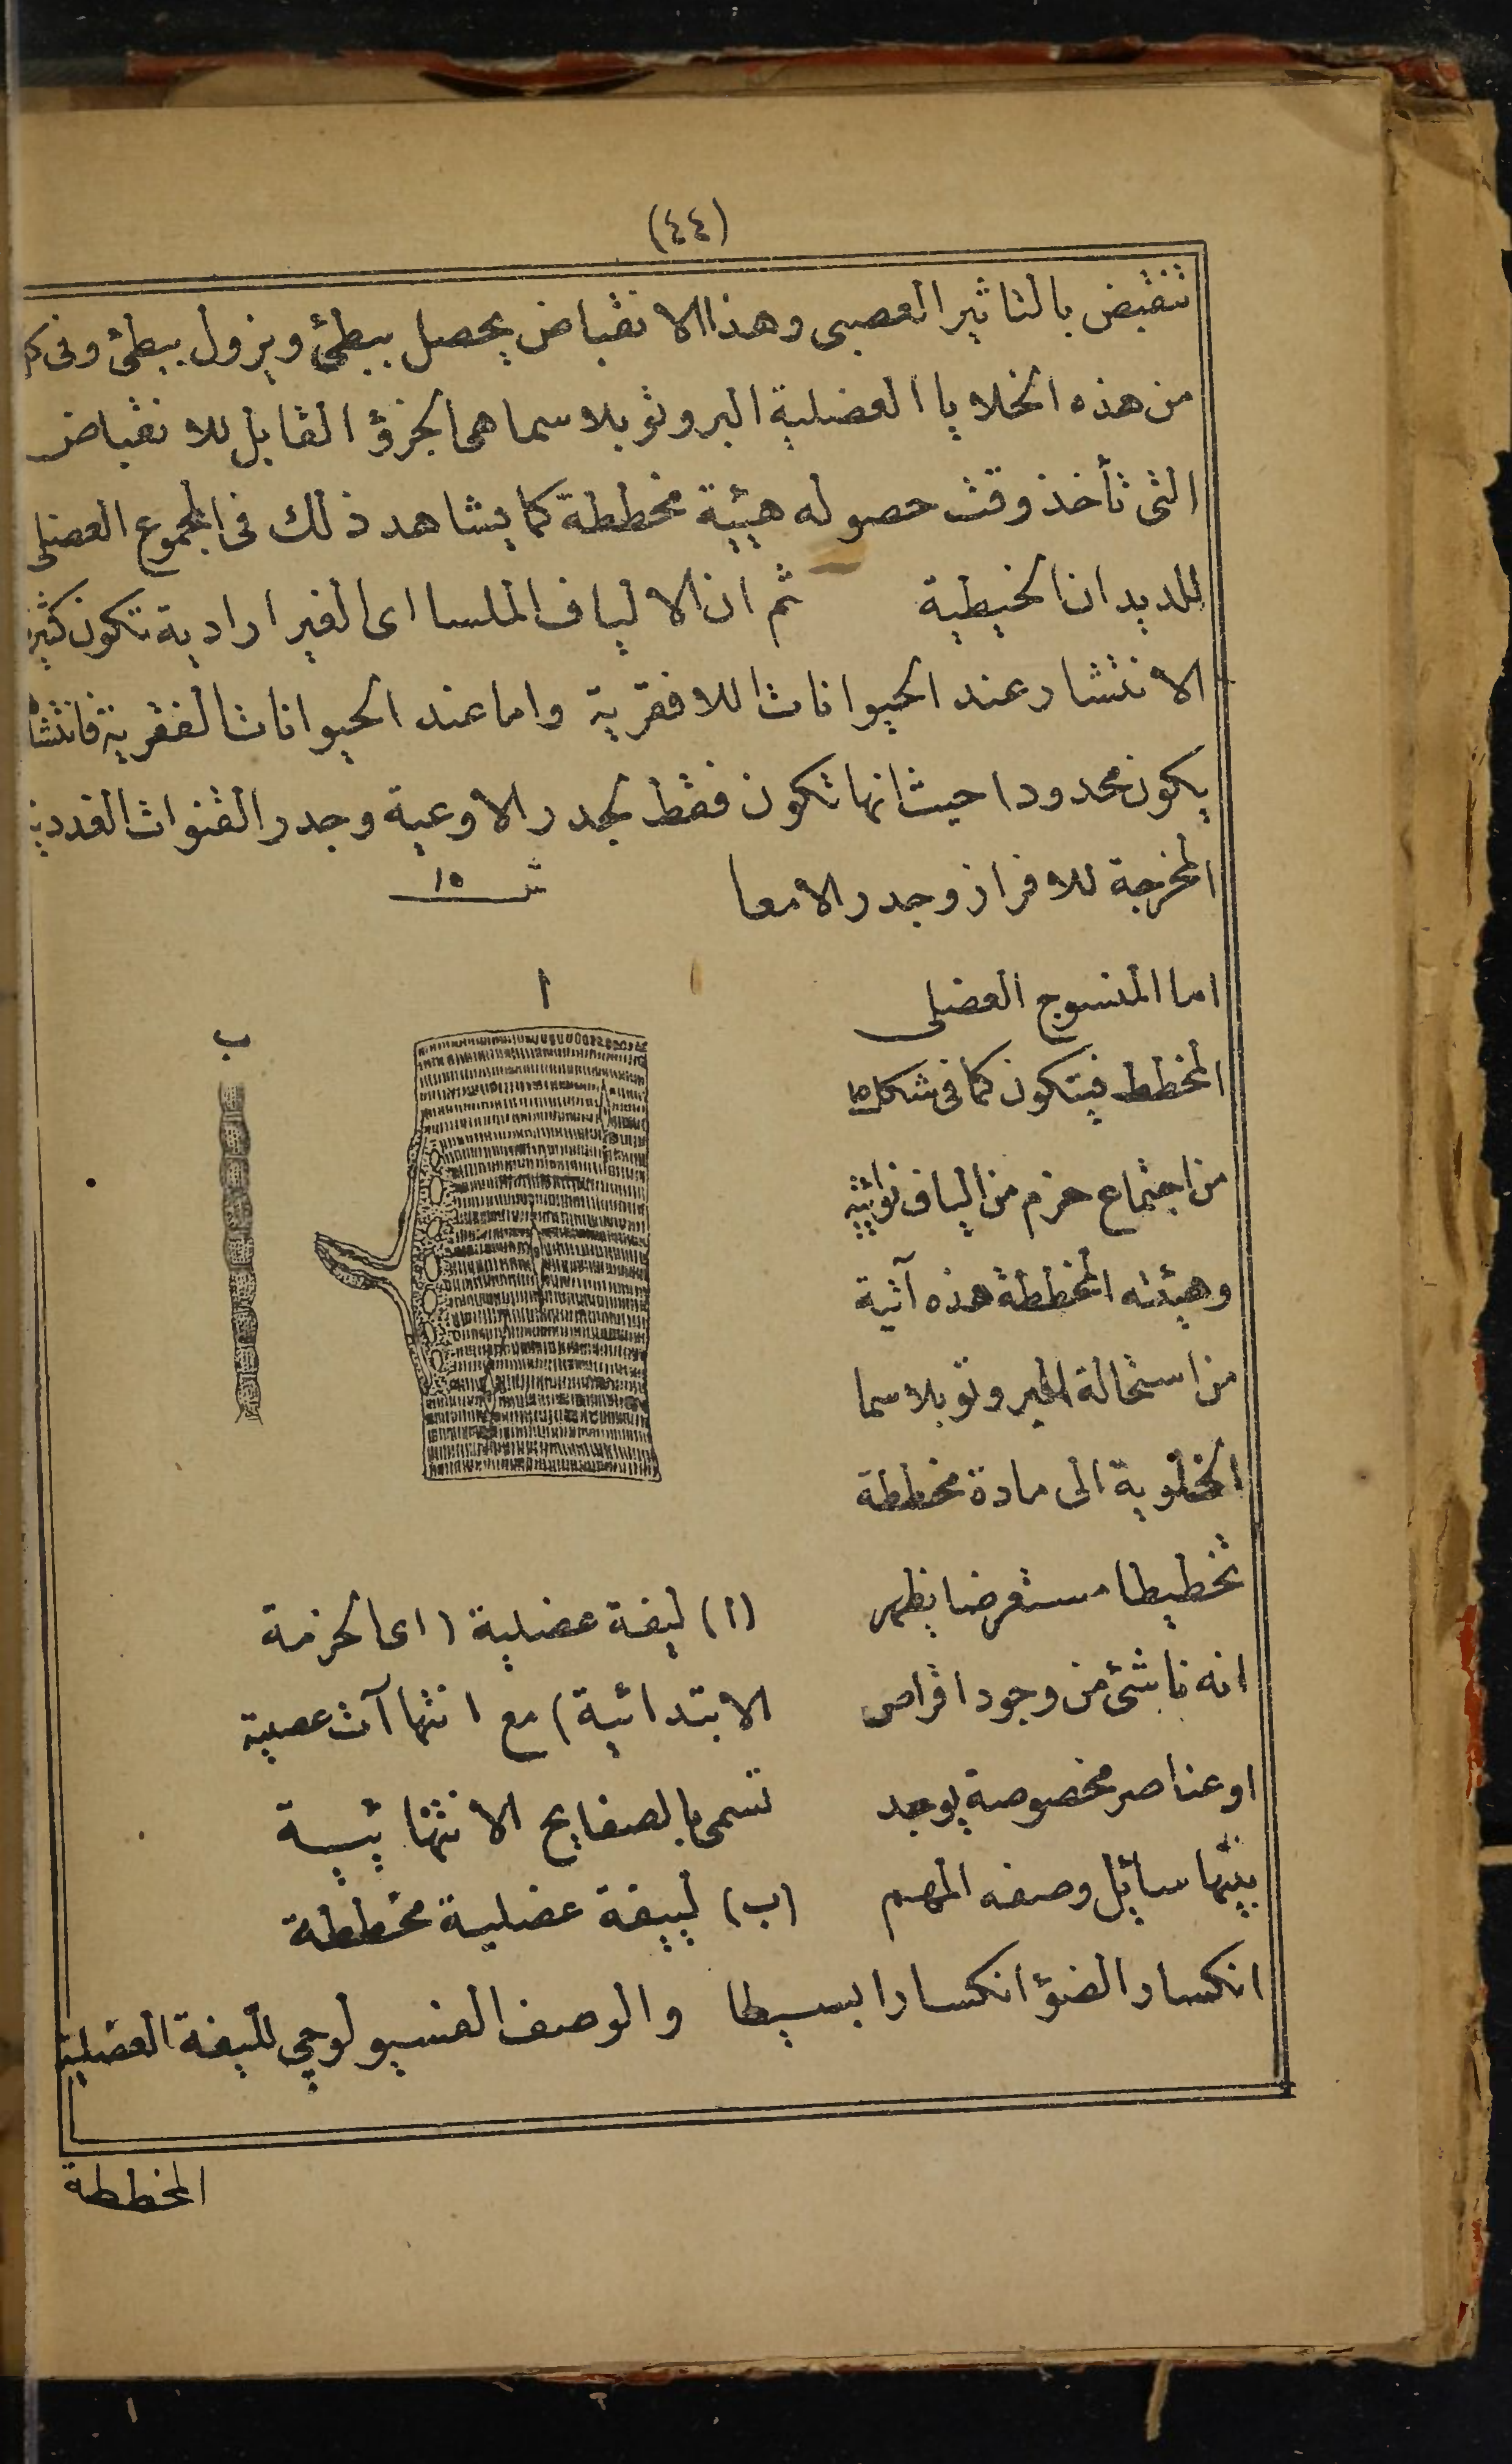 (٤٤)
تنقبض بالتاثير العصبى وهذا الانقباض يحصل ببطئ ويزول ببطئ وفى
من هذه الخلايا العضلية البروتوبلاسما هى الجزؤ القابل للانقباض
التى تأخذ وقت حصوله هيئة مخططة كما يشاهد ذلك فى المجموع العضلى
للديدان الخيطية ثم ان الالياف الملسا اى الغير ارادية تكون كثيرة
الانتشار عند الحيوانات اللافقرية واما عند الحيوانات الفقرية فانتشا
يكون محدودا حيث انها تكون فقط بجدر الاوعية وجدر القنوات الغددية
المخرجة للافراز وجدر الامعا
شـ ١٥
ا
ب
اما المنسوج العضلى
المخطط فيتكون كما فى شكل ١٥
من اجتماع حزم من الياف
وهيئته المخططة هذه آتية
من استحالة البروتوبلاسما
الخلوية الى مادة مخططة
تخطيطا مستعرضا يظهر
انه ناشئ من وجود اقراص
او عناصر مخصوصة يوجد
بينها سائل وصفه المهم
(ا) ليفة عضلية (اى الحزمة
الابتدائية) مع انتهاآت عصبية
تسمى بالصفايح الانتهائيية
(ب) لييفة عضلية مخططة
انكسار الضؤ انكسارا بسيطا والوصف الفسيولوجى لليفة العضلية
المخططة